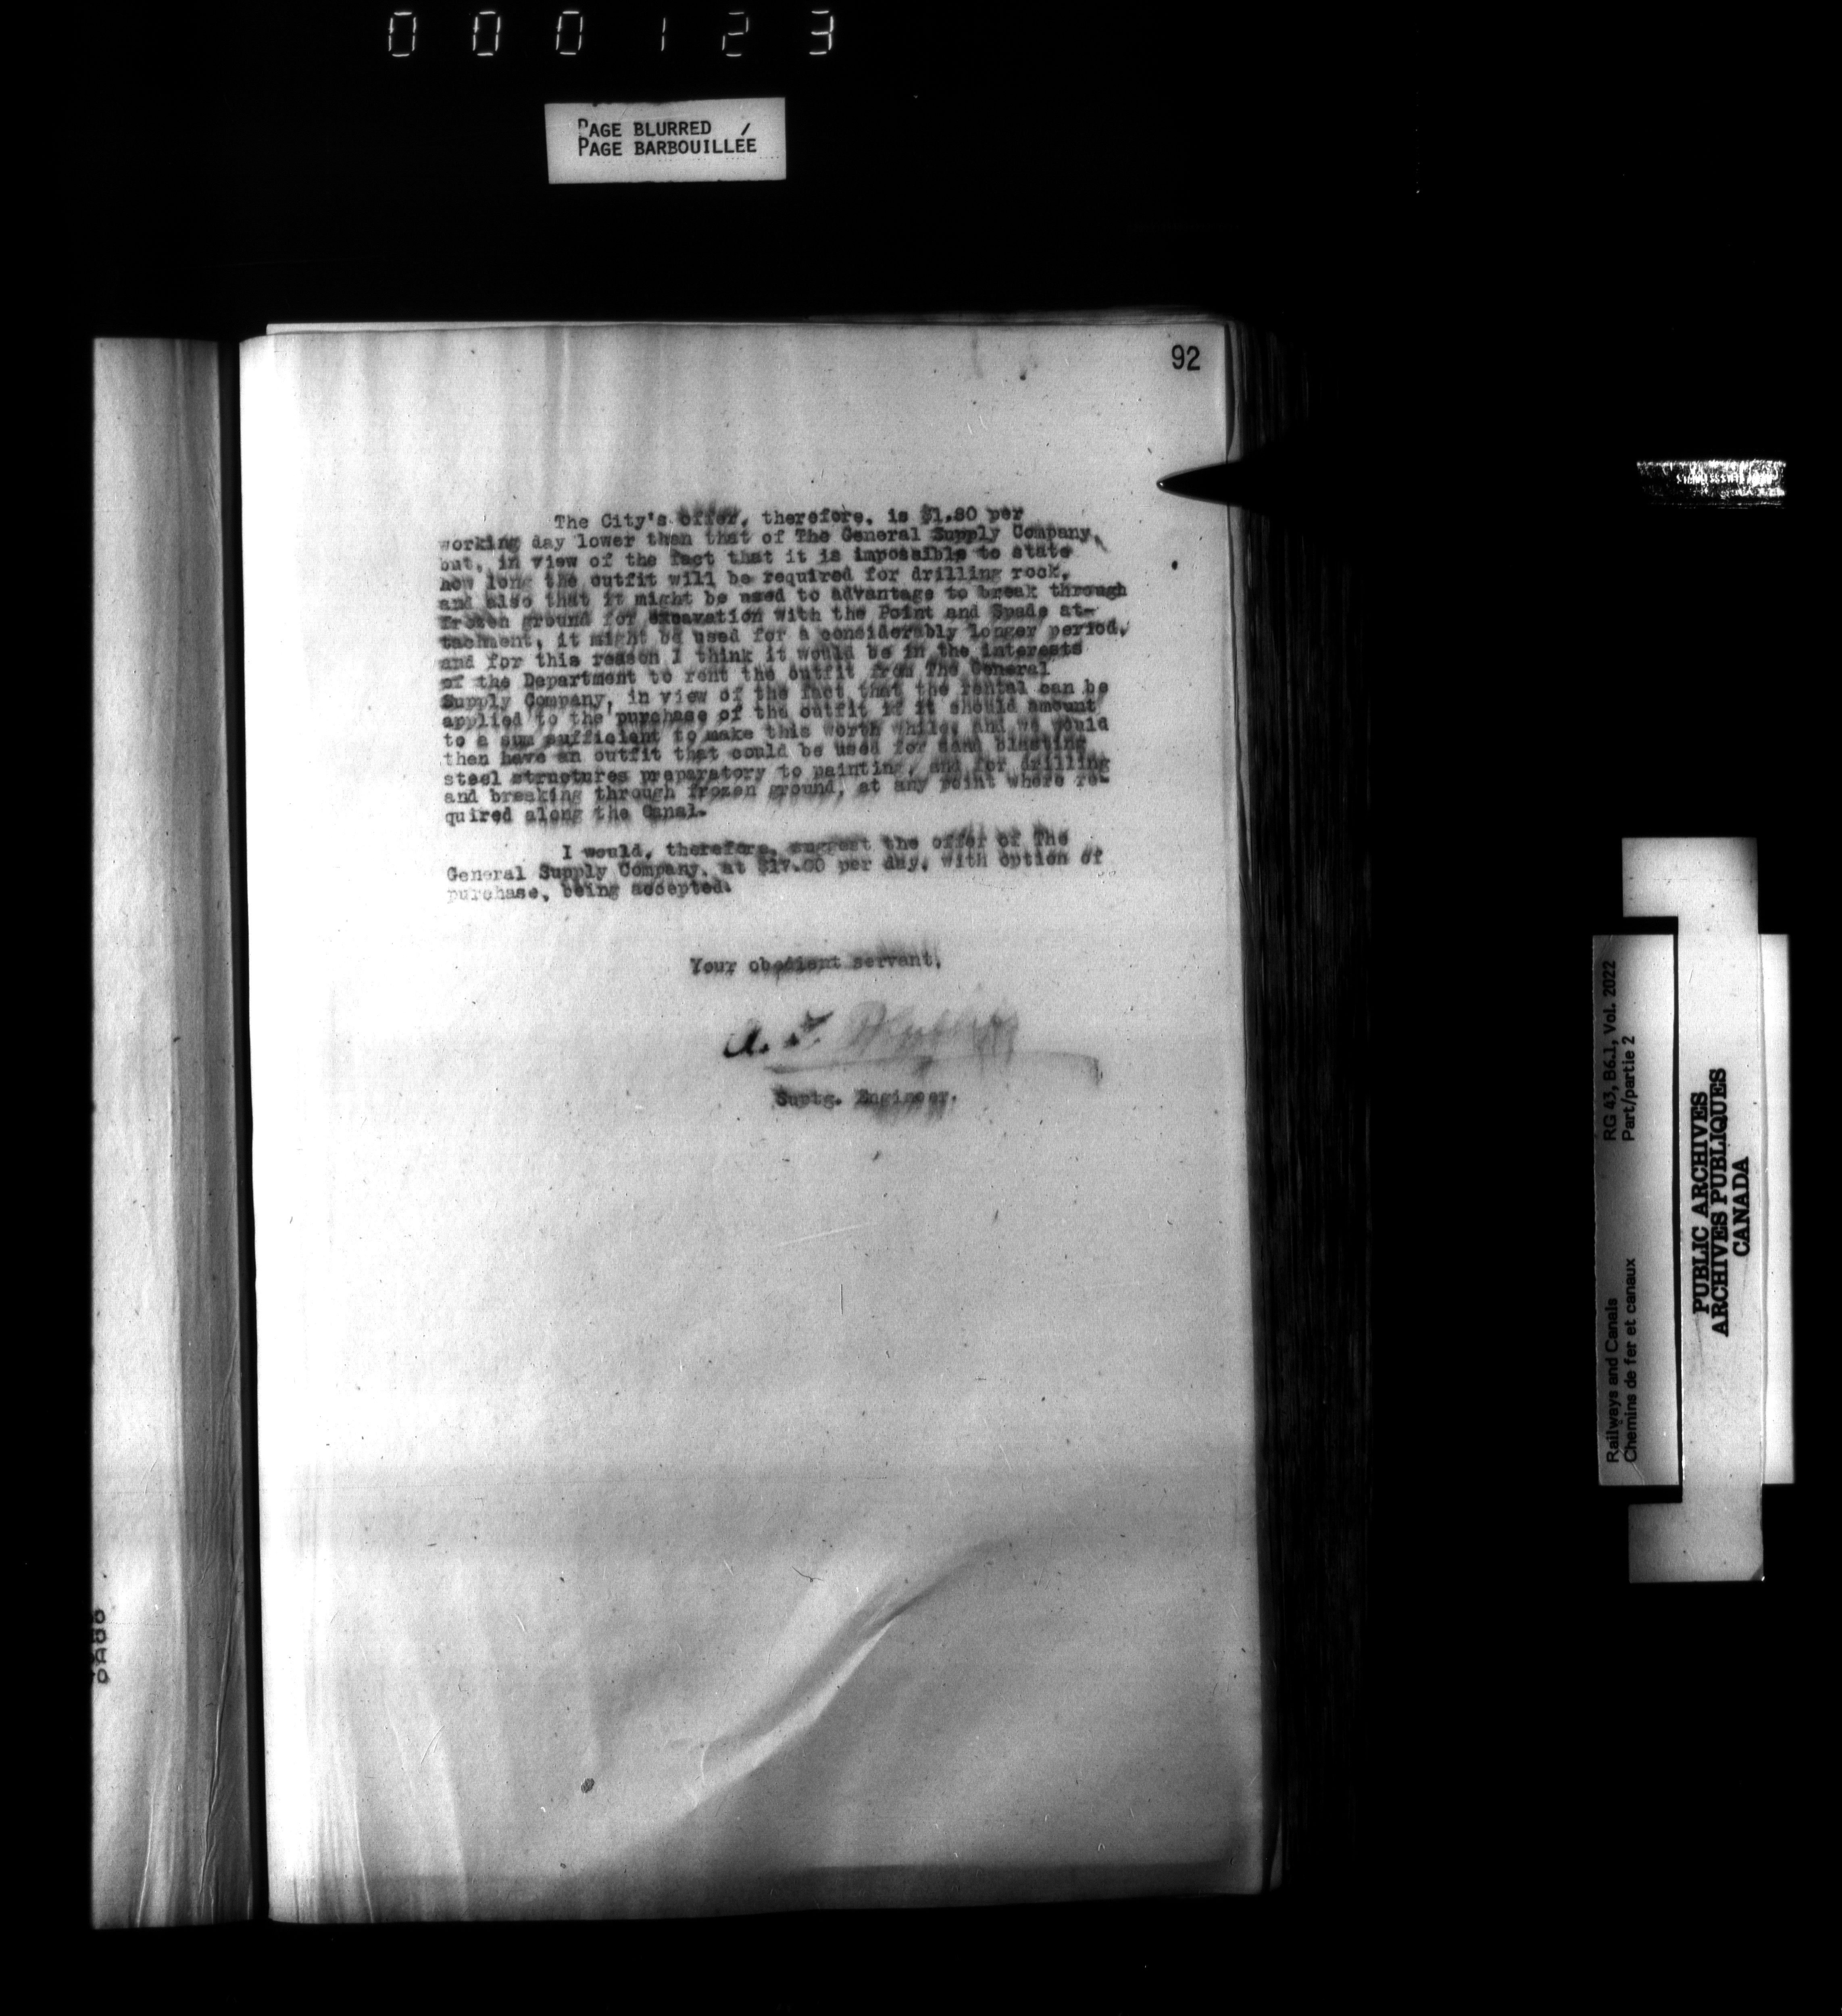 000123
PAGE BLURRED
PAGE BARBOUILLÉE
92
The City's offer, therefore, is $1.80 per
working day lower than that of The General Supply Company,
but, in view of the fact that it is impossible to state
how long the outfit will be required for drilling rock,
and also that it might be used to advantage to break through
frozen ground for excavation with the Point and Spade at-
tachment, it might be used for a considerably longer period,
and for this reason I think it would be in the interests
of the Department to rent the outfit from The General
Supply Company, in view of the fact that the rental can be
applied to the purchase of the outfit if it should amount
to a sum sufficient to make this worth while, and we would
then have an outfit that could be used for sand blasting
steel structures preparatory to painting, and for drilling
and breaking through frozen ground, at any point where re-
quired along the Canal.
I would, therefore, suggest the offer of The
General Supply Company, at $17.00 per day, with option of
purchase, being accepted.
Your obedient servant,
A.
Suptg. Engineer.
RG 43, B6.1, Vol. 2022
Part/partie 2
Railways and Canals
Chemins de fer et canaux
PUBLIC ARCHIVES
ARCHIVES PUBLIQUES
CANADA